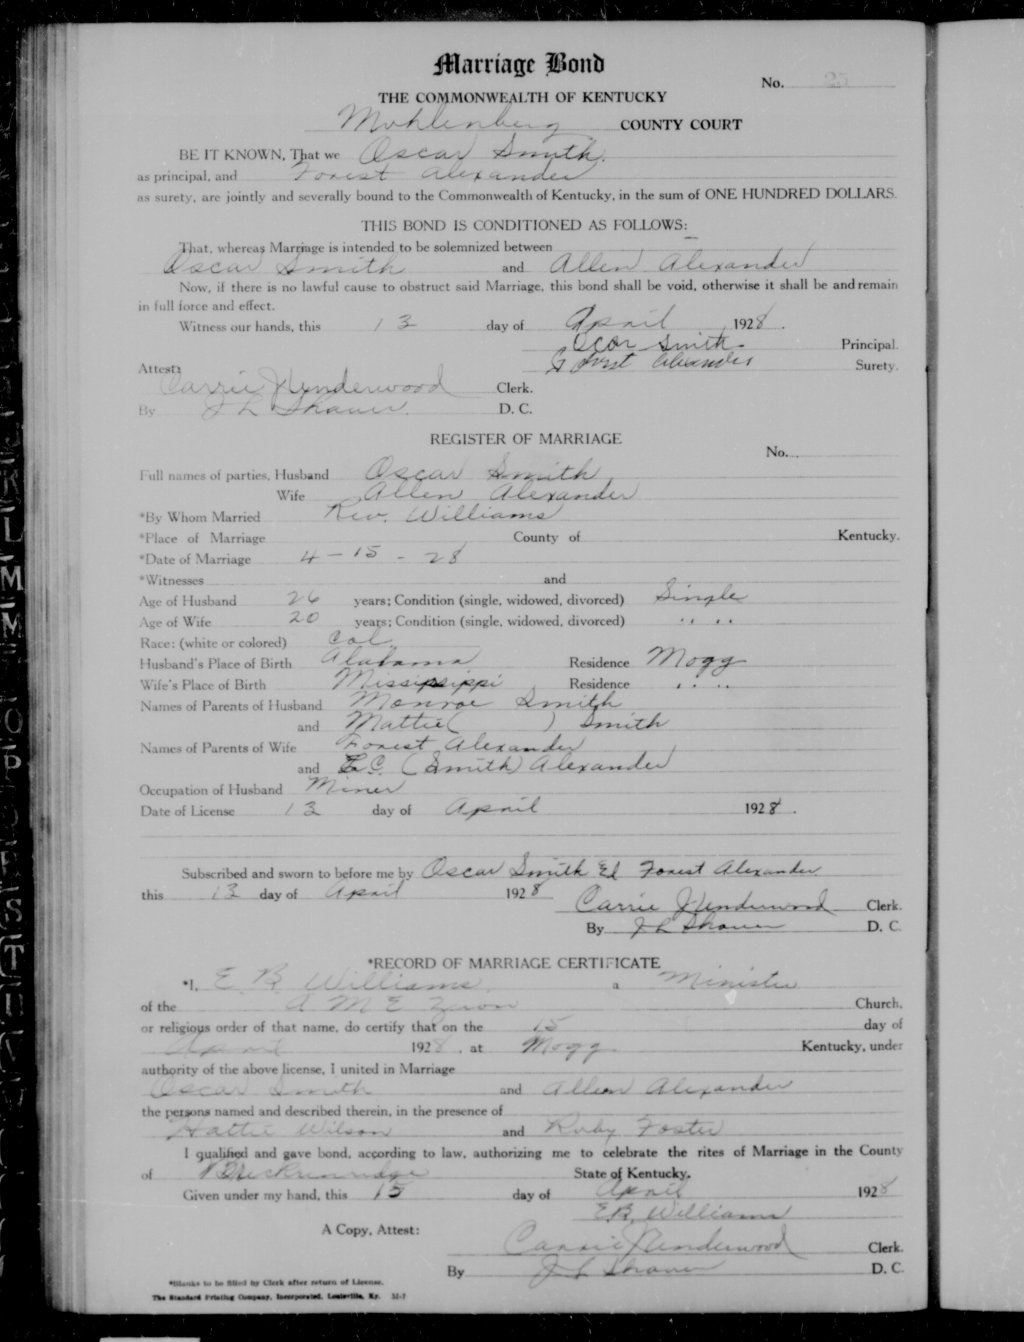 Marriage Bond
No. 25
THE COMMONWEALTH OF KENTUCKY
Muhlenberg COUNTY COURT
BE IT KNOWN, That we Oscar Smith.
as principal, and Forest Alexander
as surety, are jointly and severally bound to the Commonwealth of Kentucky, in the sum of ONE HUNDRED DOLLARS.
THIS BOND IS CONDITIONED AS FOLLOWS:
That, whereas Marriage is intended to be solemnized between
Oscar Smith and Allen Alexander
Now, if there is no lawful cause to obstruct said Marriage, this bond shall be void, otherwise it shall be and remain
in full force and effect.
Witness our hands, this 13 day of April 1928.
Oscor Smith Principal.
Forest Alexander Surety.
Attest:
Carrie J Underwood Clerk.
By J L Shaver. D. C.
REGISTER OF MARRIAGE
No.
Full names of parties, Husband Oscar Smith
Wife Allen Alexander
*By Whom Married Rev. Williams
*Place of Marriage County of Kentucky.
*Date of Marriage 4-15-28
*Witnesses and
Age of Husband 26 years; Condition (single, widowed, divorced) Single
Age of Wife 20 years; Condition (single, widowed, divorced) " "
Race: (white or colored) Col.
Husband's Place of Birth Alabama Residence Mogg
Wife's Place of Birth Mississippi Residence " "
Names of Parents of Husband Monroe Smith
and Mattie ( ) Smith
Names of Parents of Wife Forest Alexander
and L.C. (Smith) Alexander
Occupation of Husband Miner
Date of License 13 day of April 1928.
Subscribed and sworn to before me by Oscar Smith Ed Forest Alexander
this 13 day of April 1928
Carrie J Underwood Clerk.
By J L Shaver D. C.
*RECORD OF MARRIAGE CERTIFICATE
*I, E. B. Williams. a Minister
of the A M E Zion Church,
or religious order of that name, do certify that on the 15 day of
April 1928, at Mogg Kentucky, under
authority of the above license, I united in Marriage
Oscar Smith and Allen Alexander
the persons named and described therein, in the presence of
Hattie Wilson and Ruby Foster
I qualified and gave bond, according to law, authorizing me to celebrate the rites of Marriage in the County
of Breckenridge State of Kentucky.
Given under my hand, this 15 day of April 1928
E.B. Williams
A Copy, Attest:
Carrie J Underwood Clerk.
By J L Shaver D. C.
*Blanks to be filled by Clerk after return of License.
The Standard Printing Company, Incorporated, Louisville, Ky.